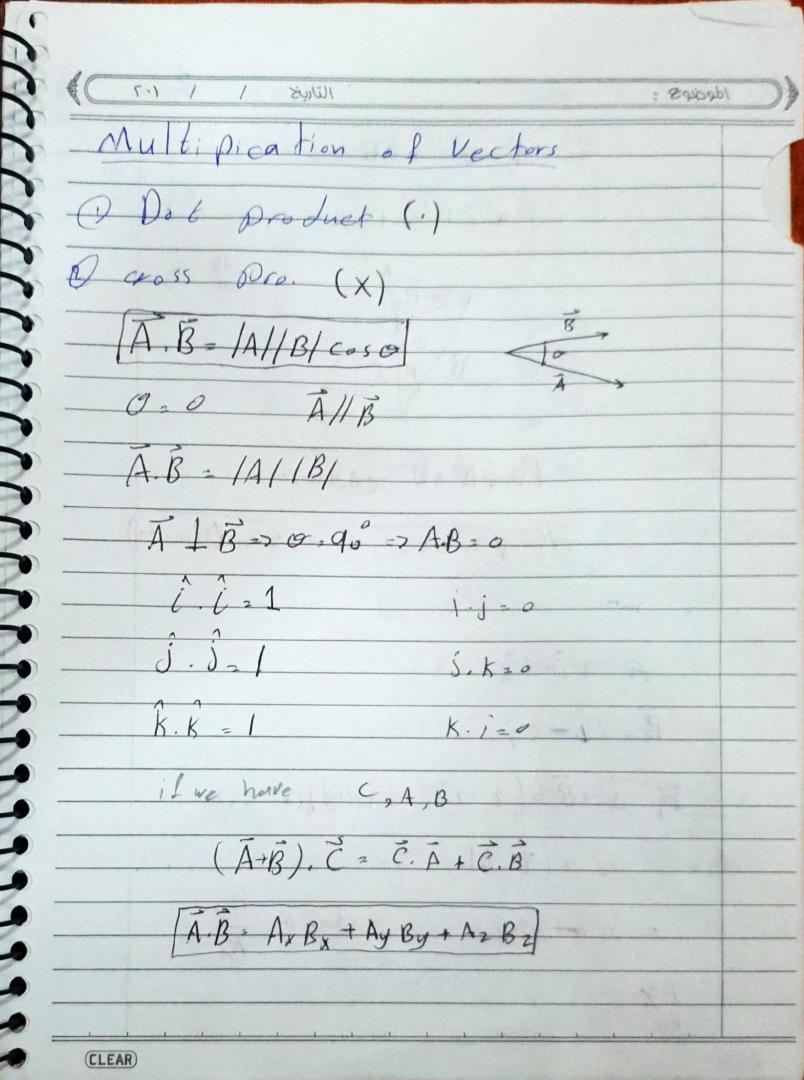 الموضوع : التاريخ / / ٢٠١
Multipication of Vectors
① Dot product (.)
② cross pro. (x)
A⃗.B⃗ = |A||B| cosθ
B⃗
θ
A⃗
θ = 0 A⃗//B⃗
A⃗.B⃗ = |A||B|
A⃗ ⊥ B⃗ => θ = 90° => A.B = 0
î.î = 1 i.j = 0
ĵ.ĵ = 1 j.k = 0
k̂.k̂ = 1 k.i = 0
if we have C, A, B
(A⃗+B⃗).C⃗ = C⃗.A⃗ + C⃗.B⃗
A⃗.B⃗ = AxBx + AyBy + AzBz
CLEAR